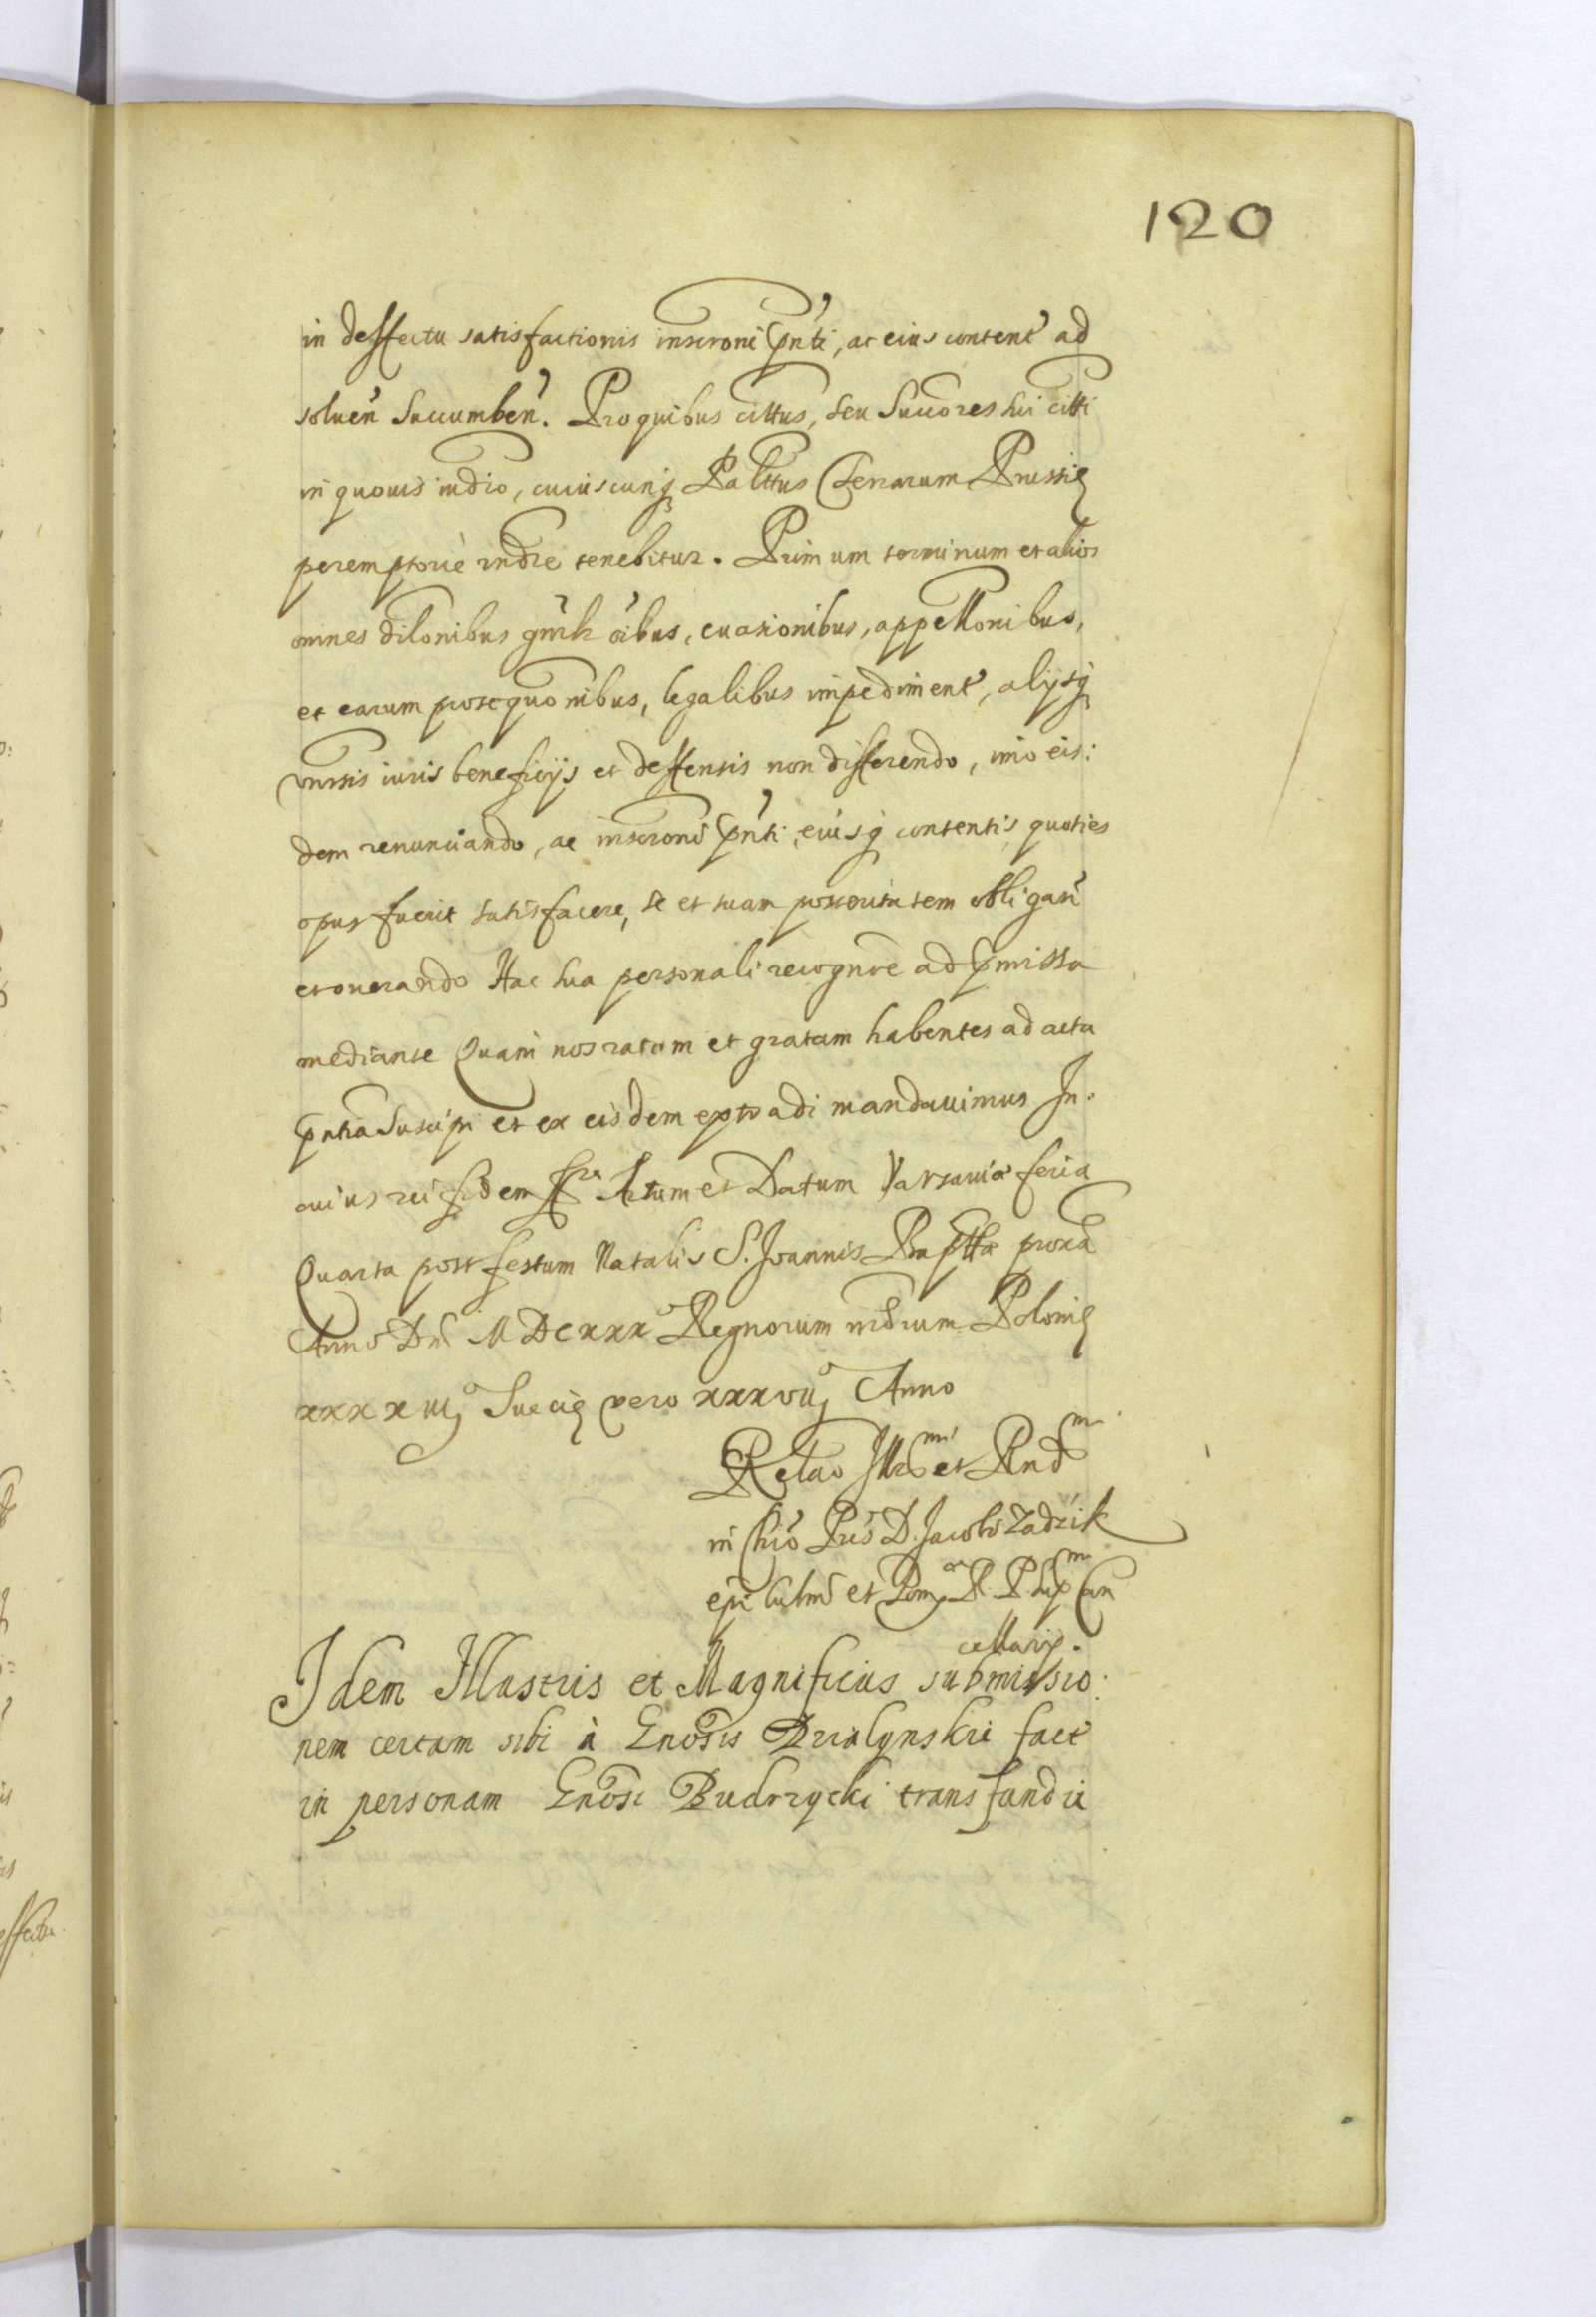 120
in deffectu satisfactionis inscroni pn̄ti, ac eius content ad
soluen̄ succumben̄. Pro quibus cittus, seu Succores sui citti
in quouis iudio, cuiuscunq Palttus Terrarum Prussię
peremptorie rndre tenebitur. Primum terminum et alios
omnes dilonibus gn̄rlr oibus, euasionibus, appellonibus,
et earum prosequonibus, legalibus impediment, alijsq
vniusis iuris beneficijs et deffensis non differendo, imo eis:
dem renunciando, ac inscroni pn̄ti, eiusq contentis, quoties
opus fuerit satisfacere, se et suam posteritatem obligari
et onerando Hac sua personali recognre ad pmissa
mediante Quam nos ratam et gratam habentes ad acta
pn̄tia Suscipi et ex eisdem extradi mandauimus In.
cuius rei fidem Actum et Datum Varsauiæ feria
Quarta post festum Natalis S. Joannis Bapttæ proxa
Anno Dn̄i MDCXXX Regnorum nrorum Polonię
xxxxiiį Suecię vero xxxviį Anno
Relao Illrmi et Rndmi
in Chro Pris D. Jacobi Zadzik
epi Culmn et Pomę R. P. supmi Can
cellarij.
Idem Illustris et Magnificus submissio:
nem certam sibi à Gnoso Dzialynski fact
in personam Gnosi Budzzycki transfundit